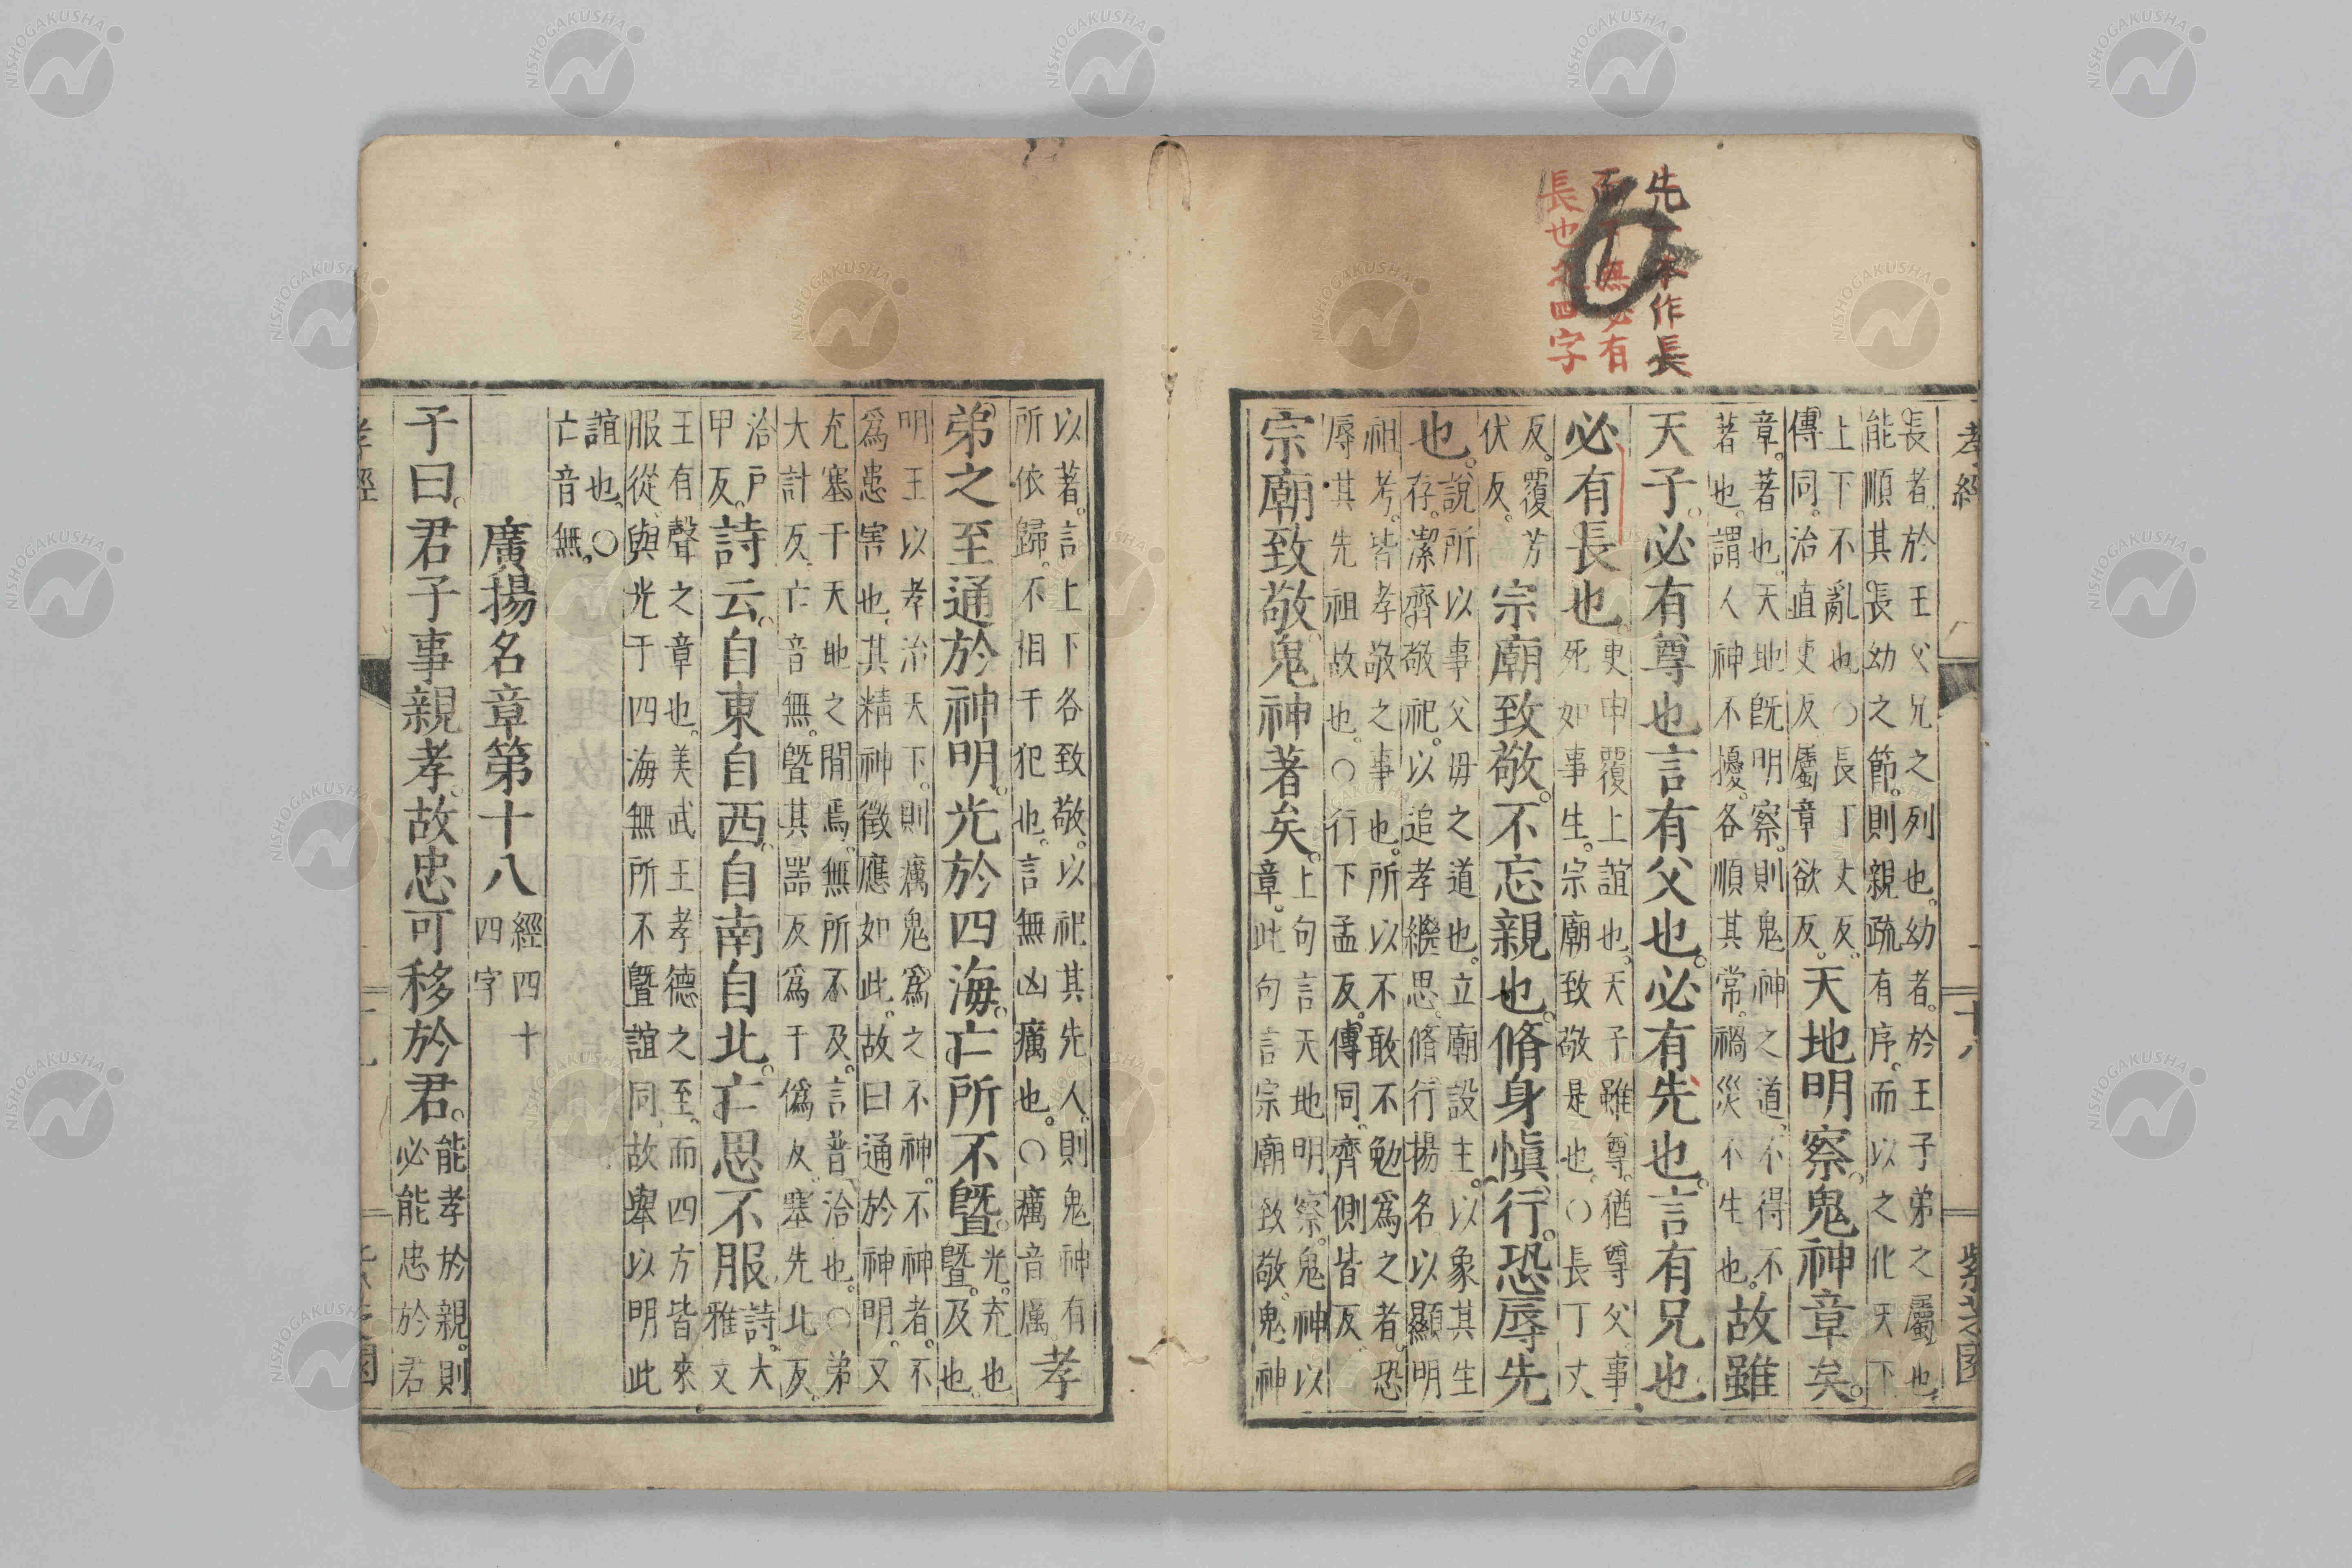 先一本作長
下無必有
長也四字
孝經 十八 紫芝園
長者於王父兄之列也幼者於王子弟之屬也
能順其長幼之節則親疏有序而以之化天下
上下不亂也○長丁丈反
傳同治直吏反屬章欲反
天地明察鬼神章矣
章著也天地既明察則鬼神之道不得不
著也謂人神不擾各順其常禍災不生也
故雖
天子必有尊也言有父也必有先也言有兄也
必有長也
更申覆上誼也天子雖尊猶尊父事
死如事生宗廟致敬是也○長丁丈
反覆芳
伏反
宗廟致敬不忘親也脩身愼行恐辱先
也
說所以事父母之道也立廟設主以象其生
存潔齊敬祀以追孝繼思脩行揚名以顯明
祖考皆孝敬之事也所以不敢不勉爲之者恐
辱其先祖故也○行下孟反傳同齊側皆反
宗廟致敬鬼神著矣
上句言天地明察鬼神以
章此句言宗廟致敬鬼神
以著言上下各致敬以祀其先人則鬼神有
所依歸不相干犯也言無凶癘也○癘音厲
孝
弟之至通於神明光於四海亡所不曁
光充也
曁及也
明王以孝治天下則癘鬼爲之不神不神者不
爲患害也其精神徵應如此故曰通於神明又
充塞于天地之間焉無所不及言普洽也○弟
大計反亡音無曁其器反爲于僞反塞先北反
洽戶
甲反
詩云自東自西自南自北亡思不服
詩大
雅文
王有聲之章也美武王孝德之至而四方皆來
服從與光于四海無所不曁誼同故舉以明此
誼也○
亡音無
廣揚名章第十八
經四十
四字
子曰君子事親孝故忠可移於君
能孝於親則
必能忠於君
孝經